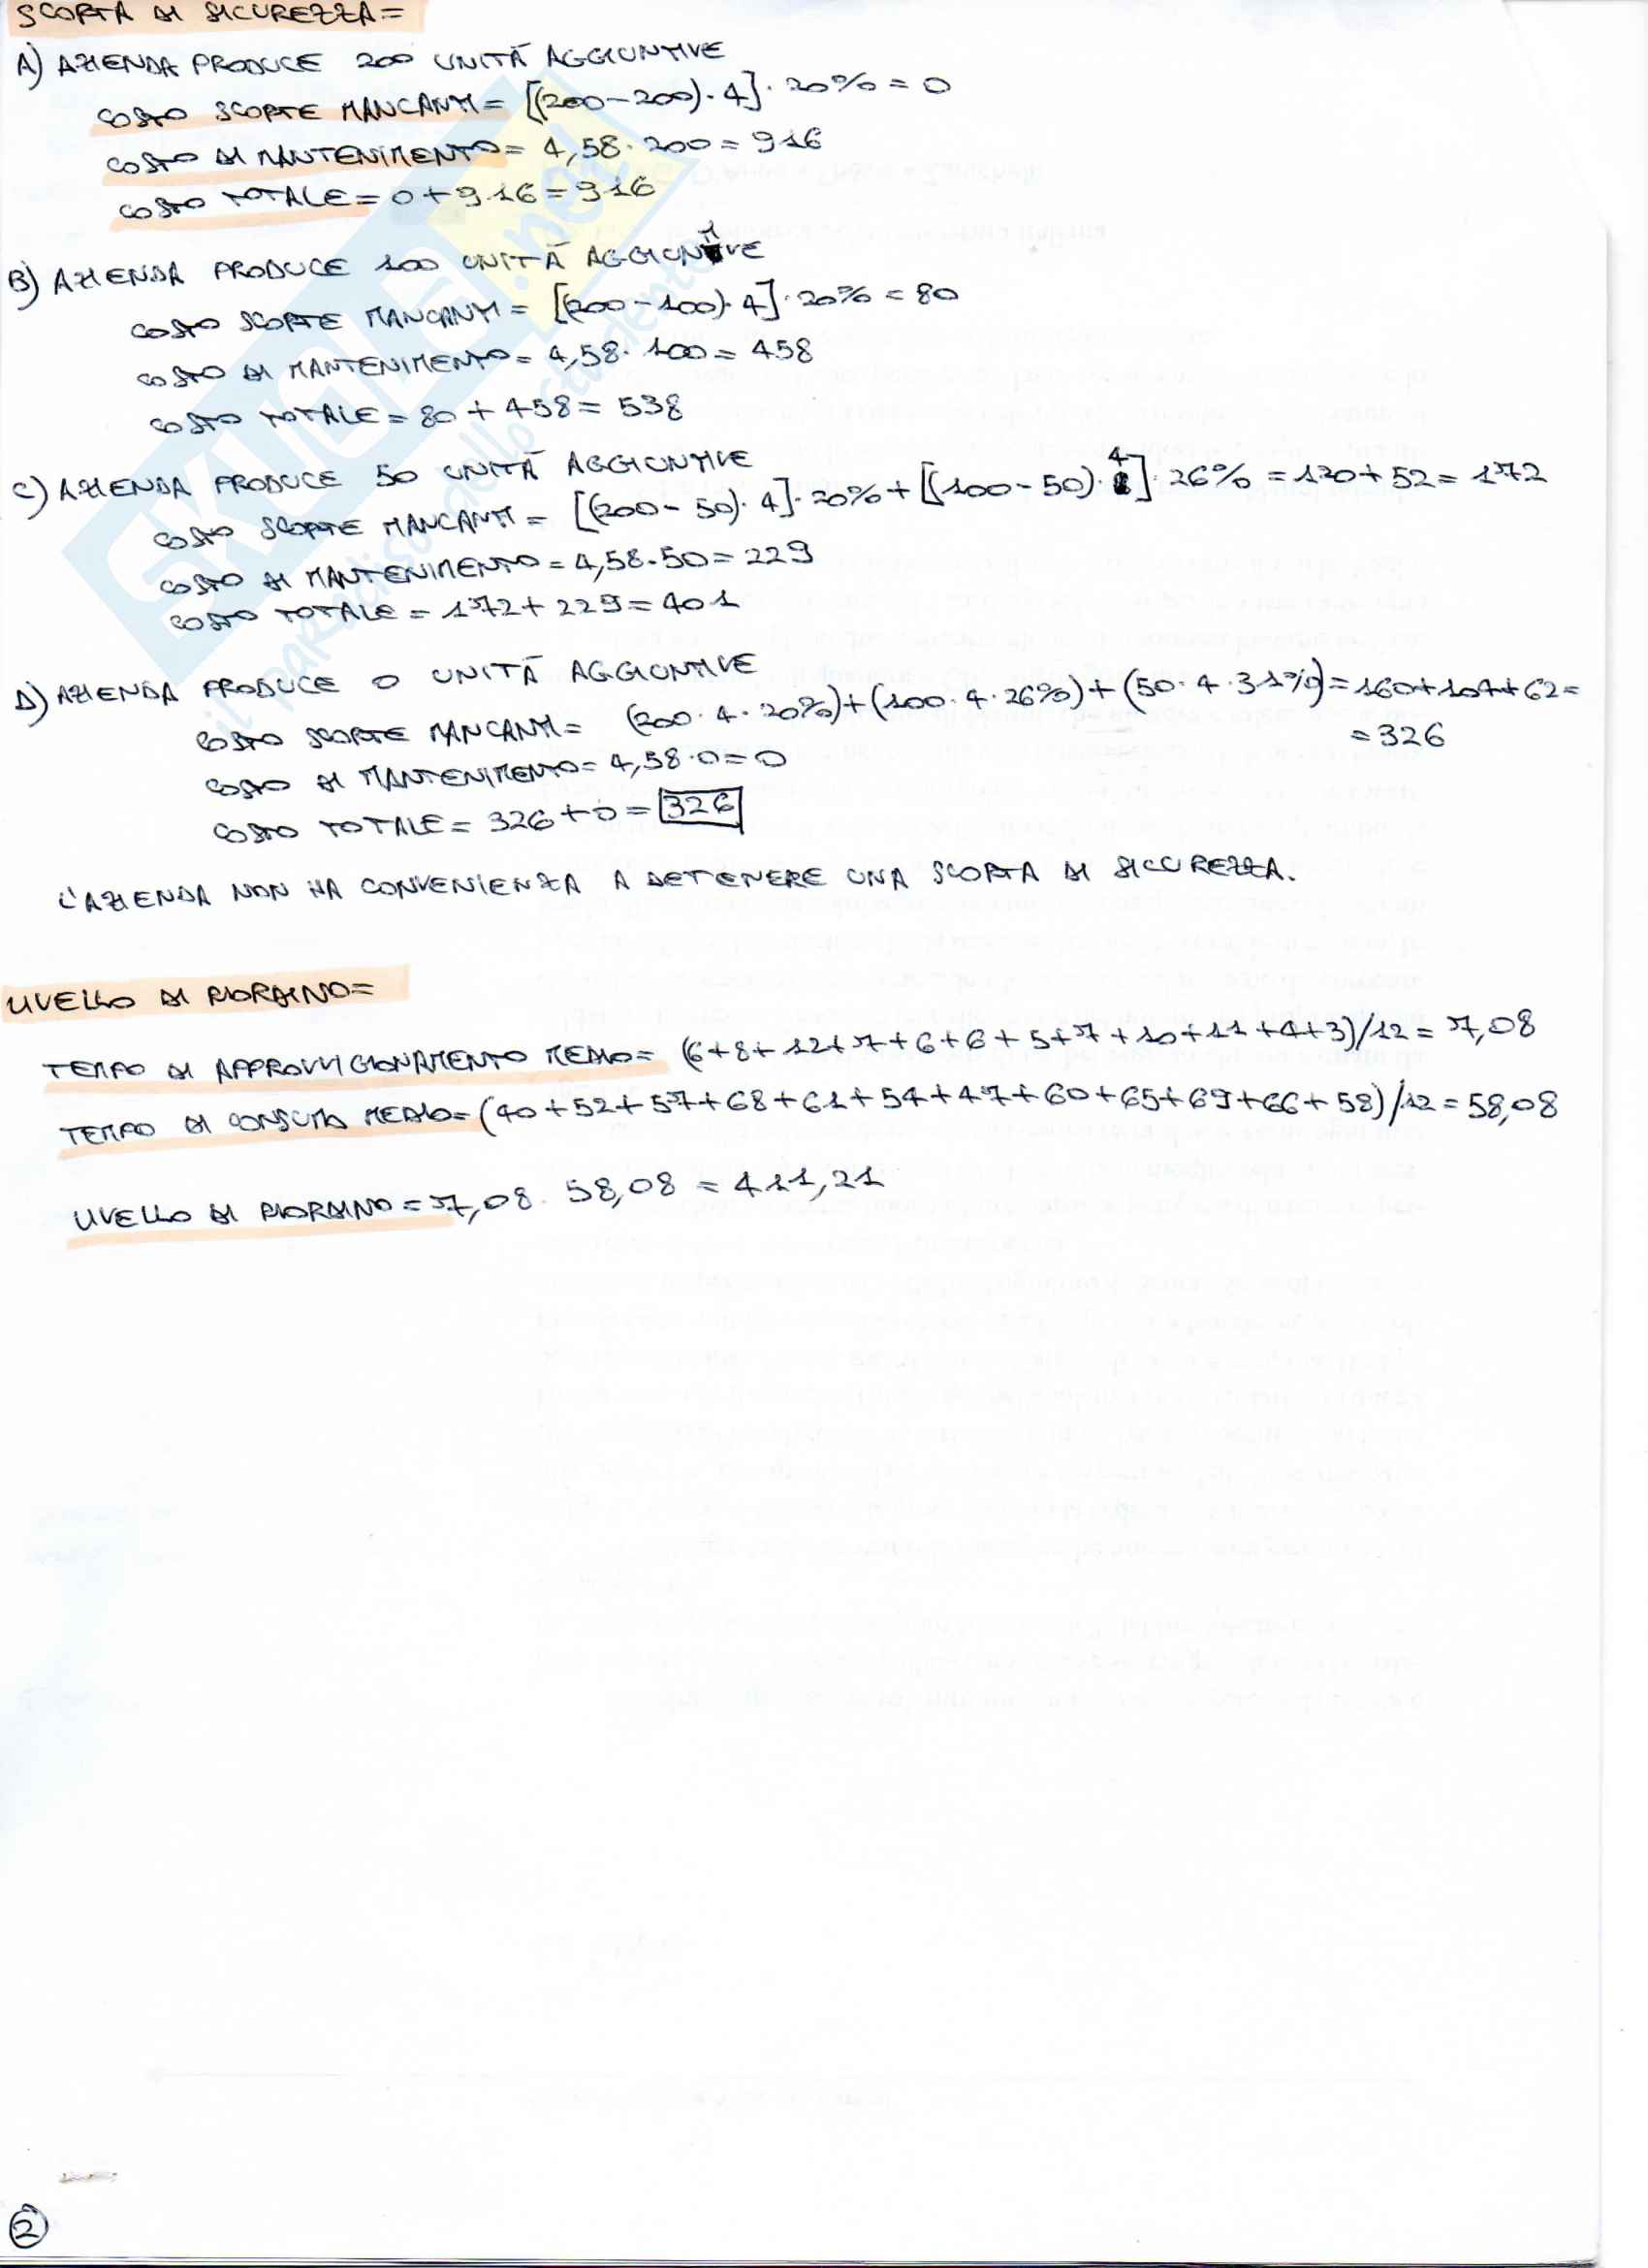 SCORTA DI SICUREZZA=
A) AZIENDA PRODUCE 200 UNITÀ AGGIUNTIVE
COSTO SCORTE MANCANTI= [(200-200)·4]·20%=0
COSTO DI MANTENIMENTO= 4,58·200=916
COSTO TOTALE=0+916=916
B) AZIENDA PRODUCE 100 UNITÀ AGGIUNTIVE
COSTO SCORTE MANCANTI= [(200-100)·4]·20%=80
COSTO DI MANTENIMENTO= 4,58·100=458
COSTO TOTALE=80+458=538
C) AZIENDA PRODUCE 50 UNITÀ AGGIUNTIVE
COSTO SCORTE MANCANTI= [(200-50)·4]·20%+[(100-50)·4]·26%=120+52=172
COSTO DI MANTENIMENTO=4,58·50=229
COSTO TOTALE=172+229=401
D) AZIENDA PRODUCE 0 UNITÀ AGGIUNTIVE
COSTO SCORTE MANCANTI= (200·4·20%)+(100·4·26%)+(50·4·31%)=160+104+62=
=326
COSTO DI MANTENIMENTO=4,58·0=0
COSTO TOTALE=326+0=326
L'AZIENDA NON HA CONVENIENZA A DETENERE UNA SCORTA DI SICUREZZA.
LIVELLO DI RIORDINO=
TEMPO DI APPROVVIGIONAMENTO MEDIO= (6+8+12+7+6+6+5+7+10+11+4+3)/12=7,08
TEMPO DI CONSUMO MEDIO=(40+52+57+68+61+54+47+60+65+69+66+58)/12=58,08
LIVELLO DI RIORDINO=7,08·58,08=411,21
2
SKUOLA.net
il paradiso dello studente